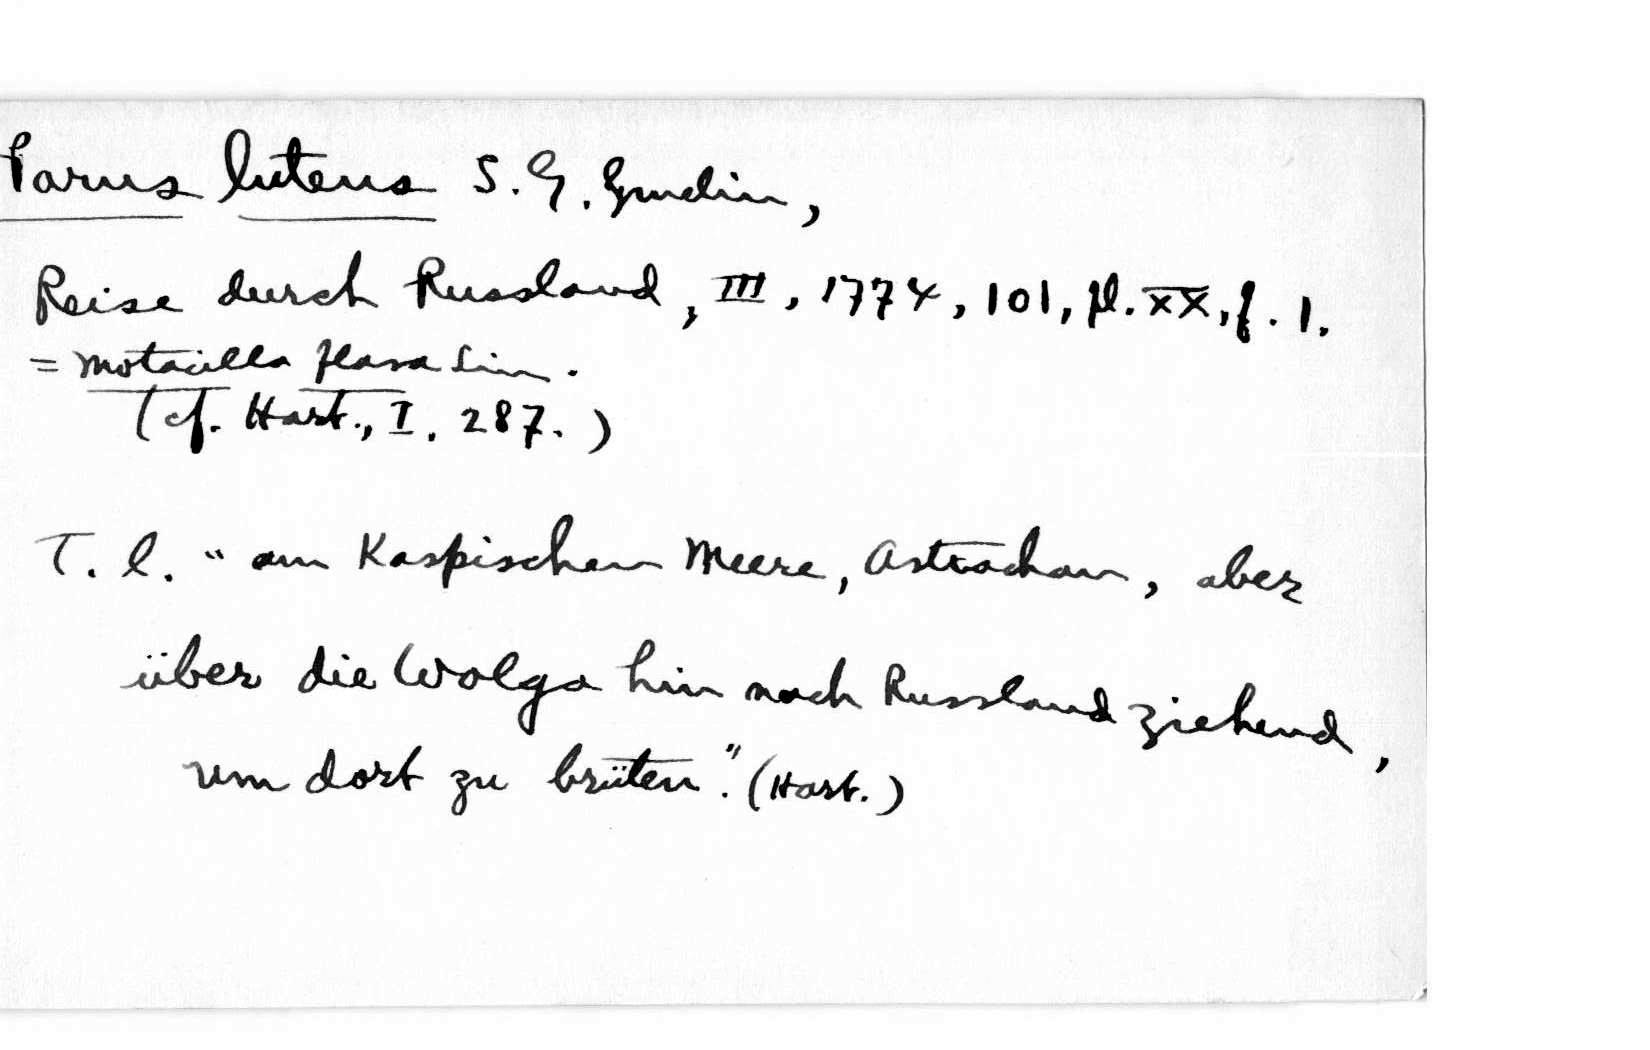 Parus luteus S. G. Gmelin,
Reise durch Russland, III, 1774, 101, pl. XX, f. 1.
= Motacilla flava Linn.
(cf. Hart., I, 287.)
T. l. "am Kaspischen Meere, Astrachan, aber
über die Wolga hin nach Russland ziehend,
um dort zu brüten." (Hart.)